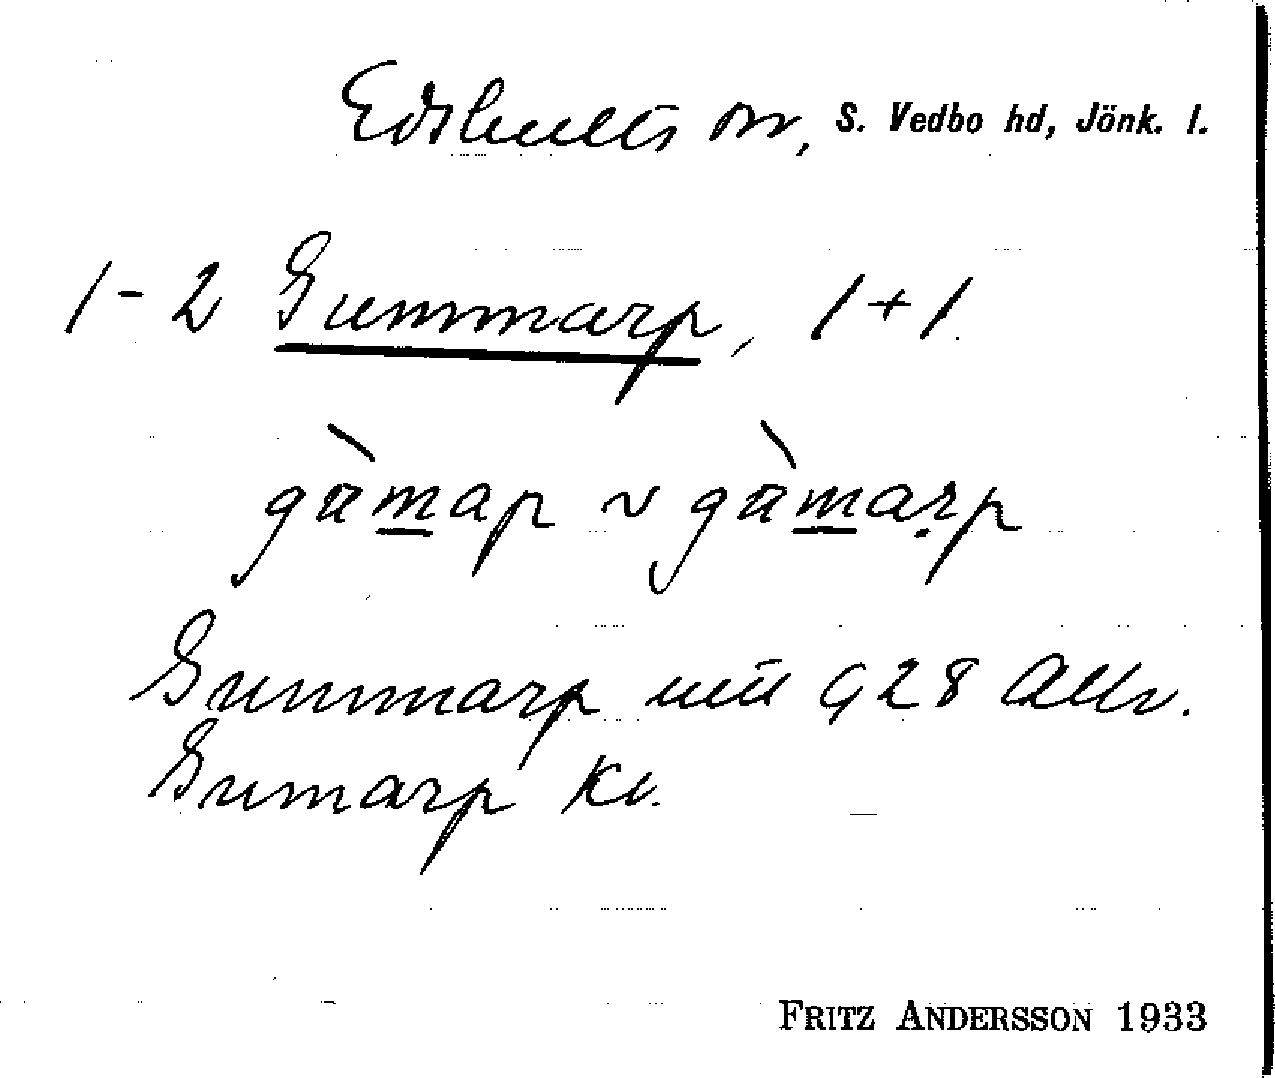 Edshults sn, S. Vedbo hd, Jönk. l.
1-2 Gummarp, 1+1.
gùmap ~ gùmarp
Gummarp 928
Gumarp
FRITZ ANDERSSON 1933